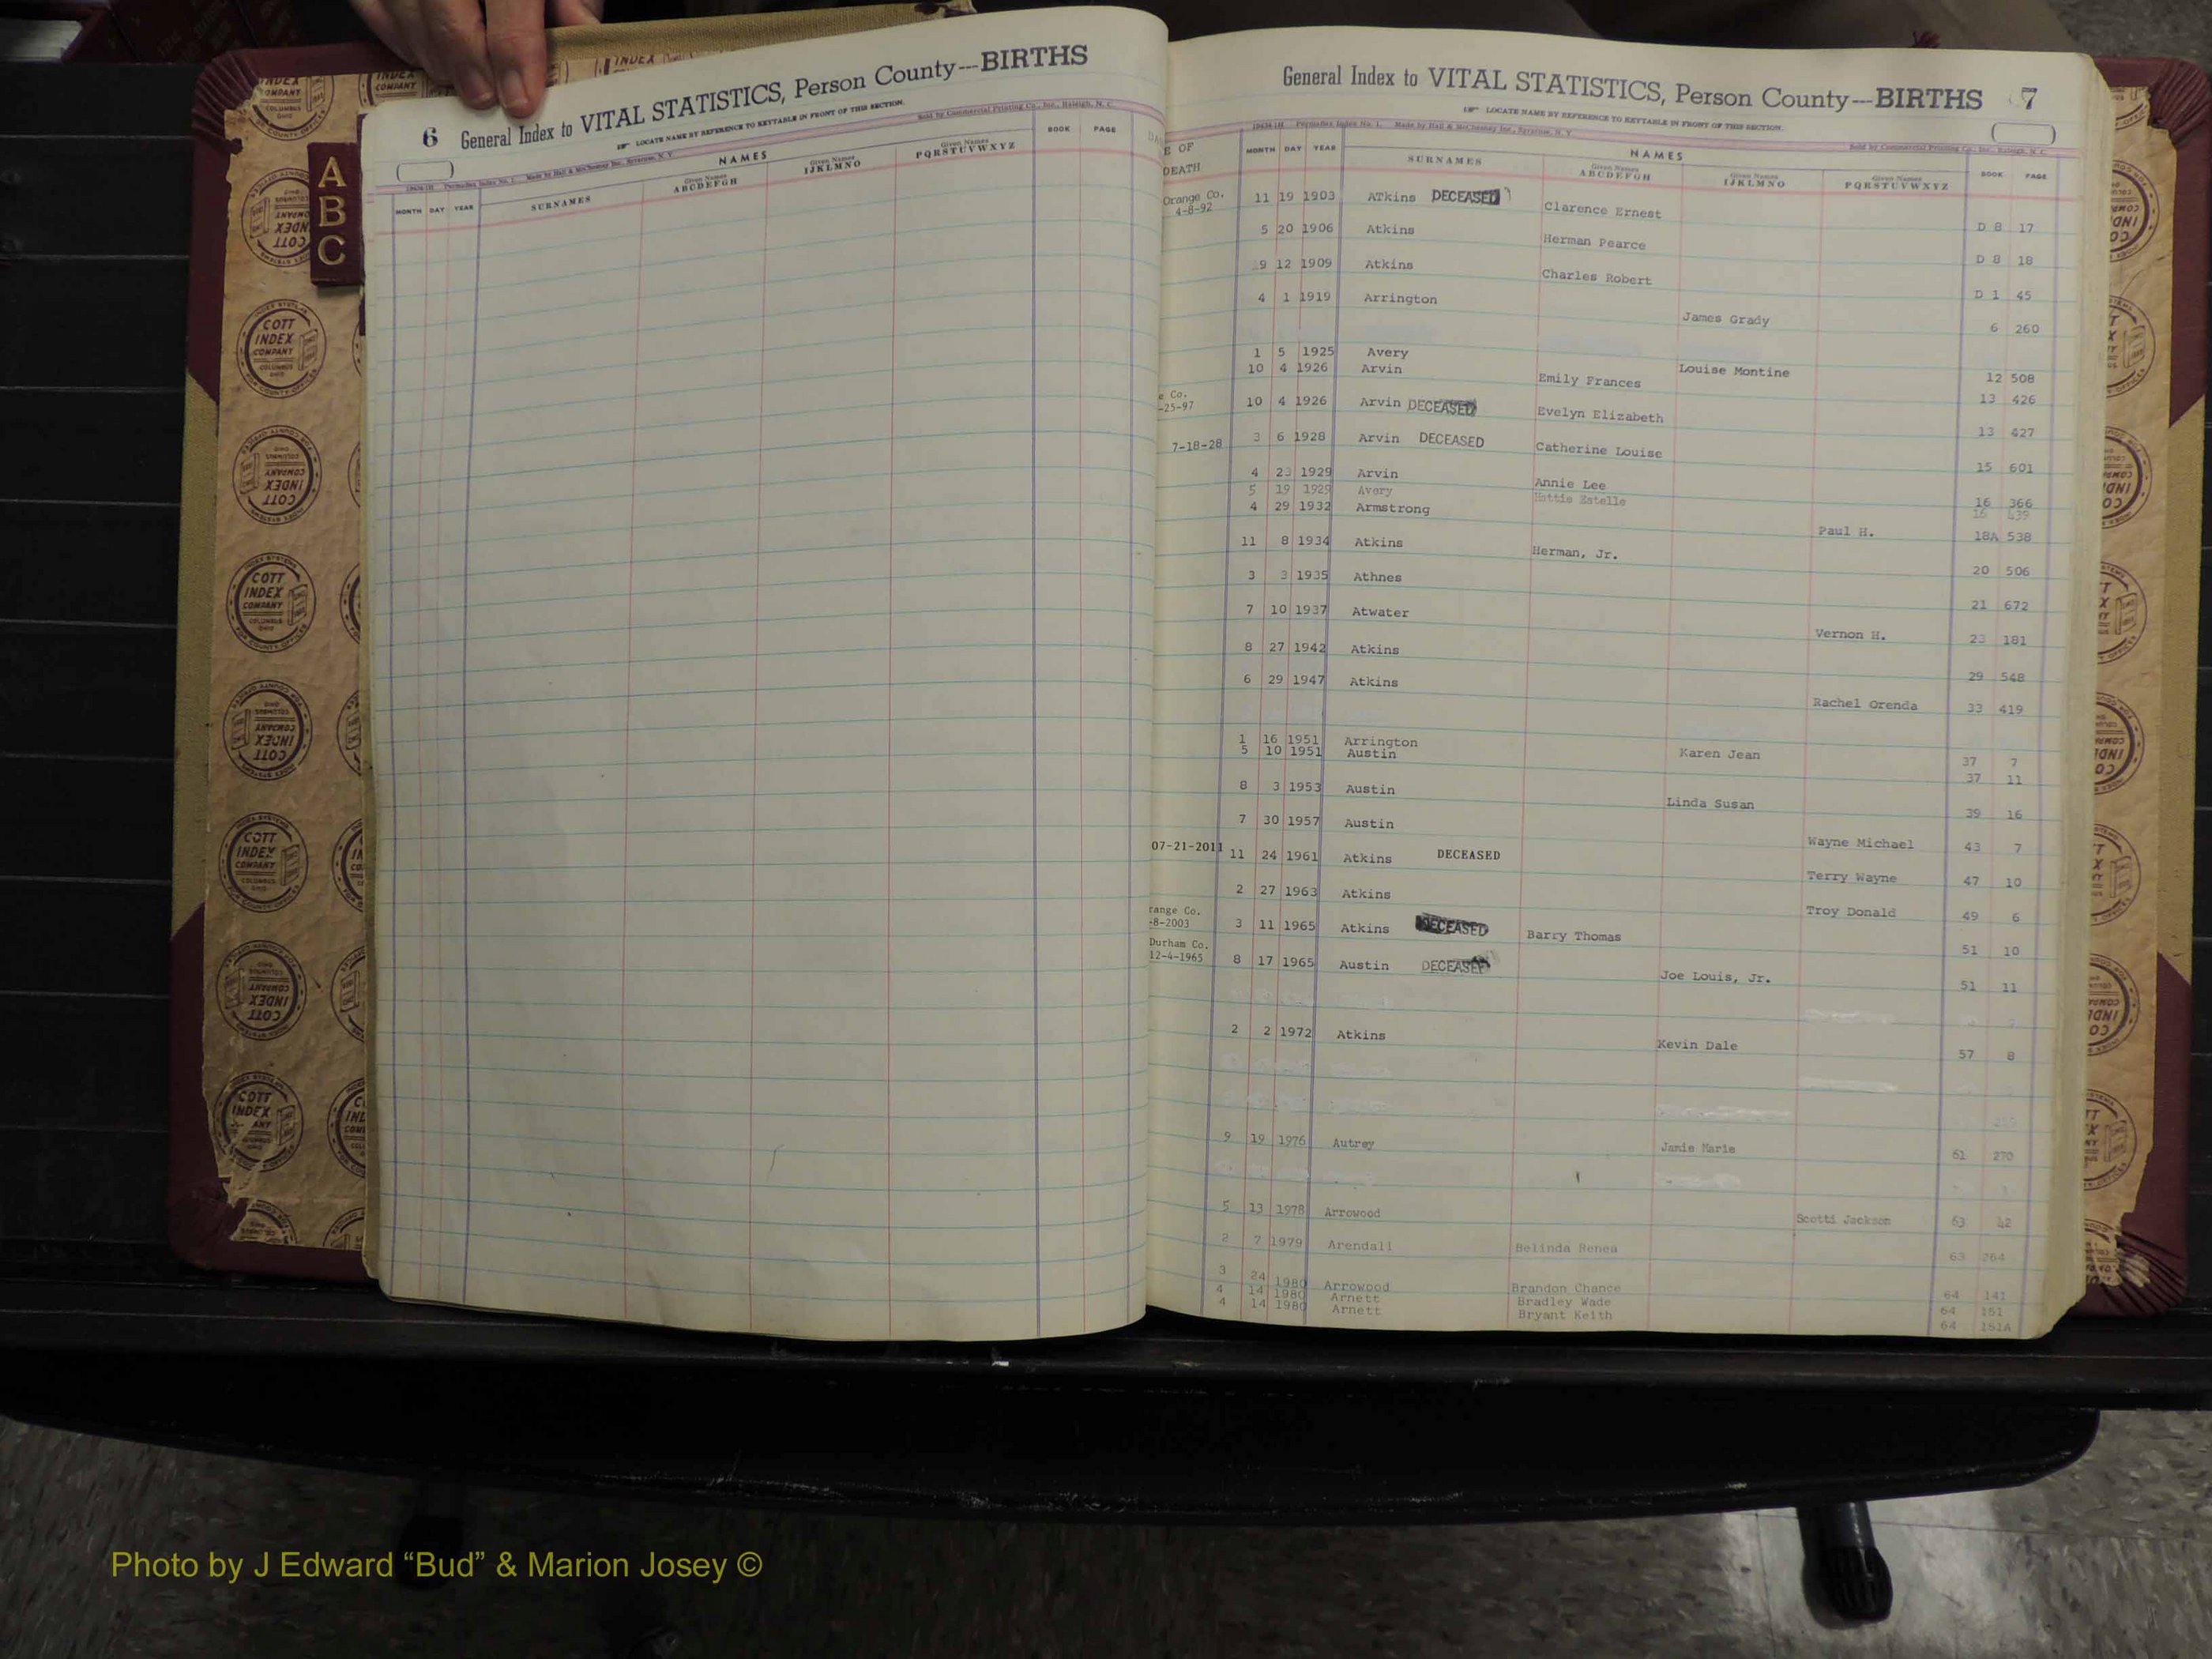 6 General Index to VITAL STATISTICS, Person County---BIRTHS
LOCATE NAME BY REFERENCE TO KEYTABLE IN FRONT OF THIS SECTION.
Sold by Commercial Printing Co., Inc., Raleigh, N. C.
Made by Hall & McChesney Inc., Syracuse, N. Y.
NAMES
MONTH DAY YEAR SURNAMES Given Names ABCDEFGH Given Names IJKLMNO Given Names PQRSTUVWXYZ BOOK PAGE
A
B
C
COTT INDEX COMPANY COLUMBUS OHIO
General Index to VITAL STATISTICS, Person County---BIRTHS 7
LOCATE NAME BY REFERENCE TO KEYTABLE IN FRONT OF THIS SECTION.
Made by Hall & McChesney Inc., Syracuse, N. Y.
Sold by Commercial Printing Co., Inc., Raleigh, N. C.
E OF
DEATH
NAMES
MONTH DAY YEAR SURNAMES Given Names ABCDEFGH Given Names IJKLMNO Given Names PQRSTUVWXYZ BOOK PAGE
Orange Co. 4-8-92 11 19 1903 ATkins DECEASED Clarence Ernest D 8 17
5 20 1906 Atkins Herman Pearce D 8 18
9 12 1909 Atkins Charles Robert D 1 45
4 1 1919 Arrington James Grady 6 260
1 5 1925 Avery Louise Montine 12 508
10 4 1926 Arvin Emily Frances 13 426
e Co. -25-97 10 4 1926 Arvin DECEASED Evelyn Elizabeth 13 427
7-18-28 3 6 1928 Arvin DECEASED Catherine Louise 15 601
4 23 1929 Arvin Annie Lee 16 366
5 19 1929 Avery Hattie Estelle 16 439
4 29 1932 Armstrong Paul H. 18A 538
11 8 1934 Atkins Herman, Jr. 20 506
3 3 1935 Athnes 21 672
7 10 1937 Atwater Vernon H. 23 181
8 27 1942 Atkins 29 548
6 29 1947 Atkins Rachel Orenda 33 419
1 16 1951 Arrington Karen Jean 37 7
5 10 1951 Austin 37 11
8 3 1953 Austin Linda Susan 39 16
7 30 1957 Austin Wayne Michael 43 7
07-21-2011 11 24 1961 Atkins DECEASED Terry Wayne 47 10
2 27 1963 Atkins Troy Donald 49 6
range Co. -8-2003 3 11 1965 Atkins DECEASED Barry Thomas 51 10
Durham Co. 12-4-1965 8 17 1965 Austin DECEASED Joe Louis, Jr. 51 11
2 2 1972 Atkins Kevin Dale 57 8
9 19 1976 Autrey Janie Marie 61 270
5 13 1978 Arrowood Scotti Jackson 63 42
2 7 1979 Arendall Belinda Renea 63 264
3 24 1980 Arrowood Brandon Chance 64 141
4 14 1980 Arnett Bradley Wade 64 151
4 14 1980 Arnett Bryant Keith 64 151A
Photo by J Edward “Bud” & Marion Josey ©